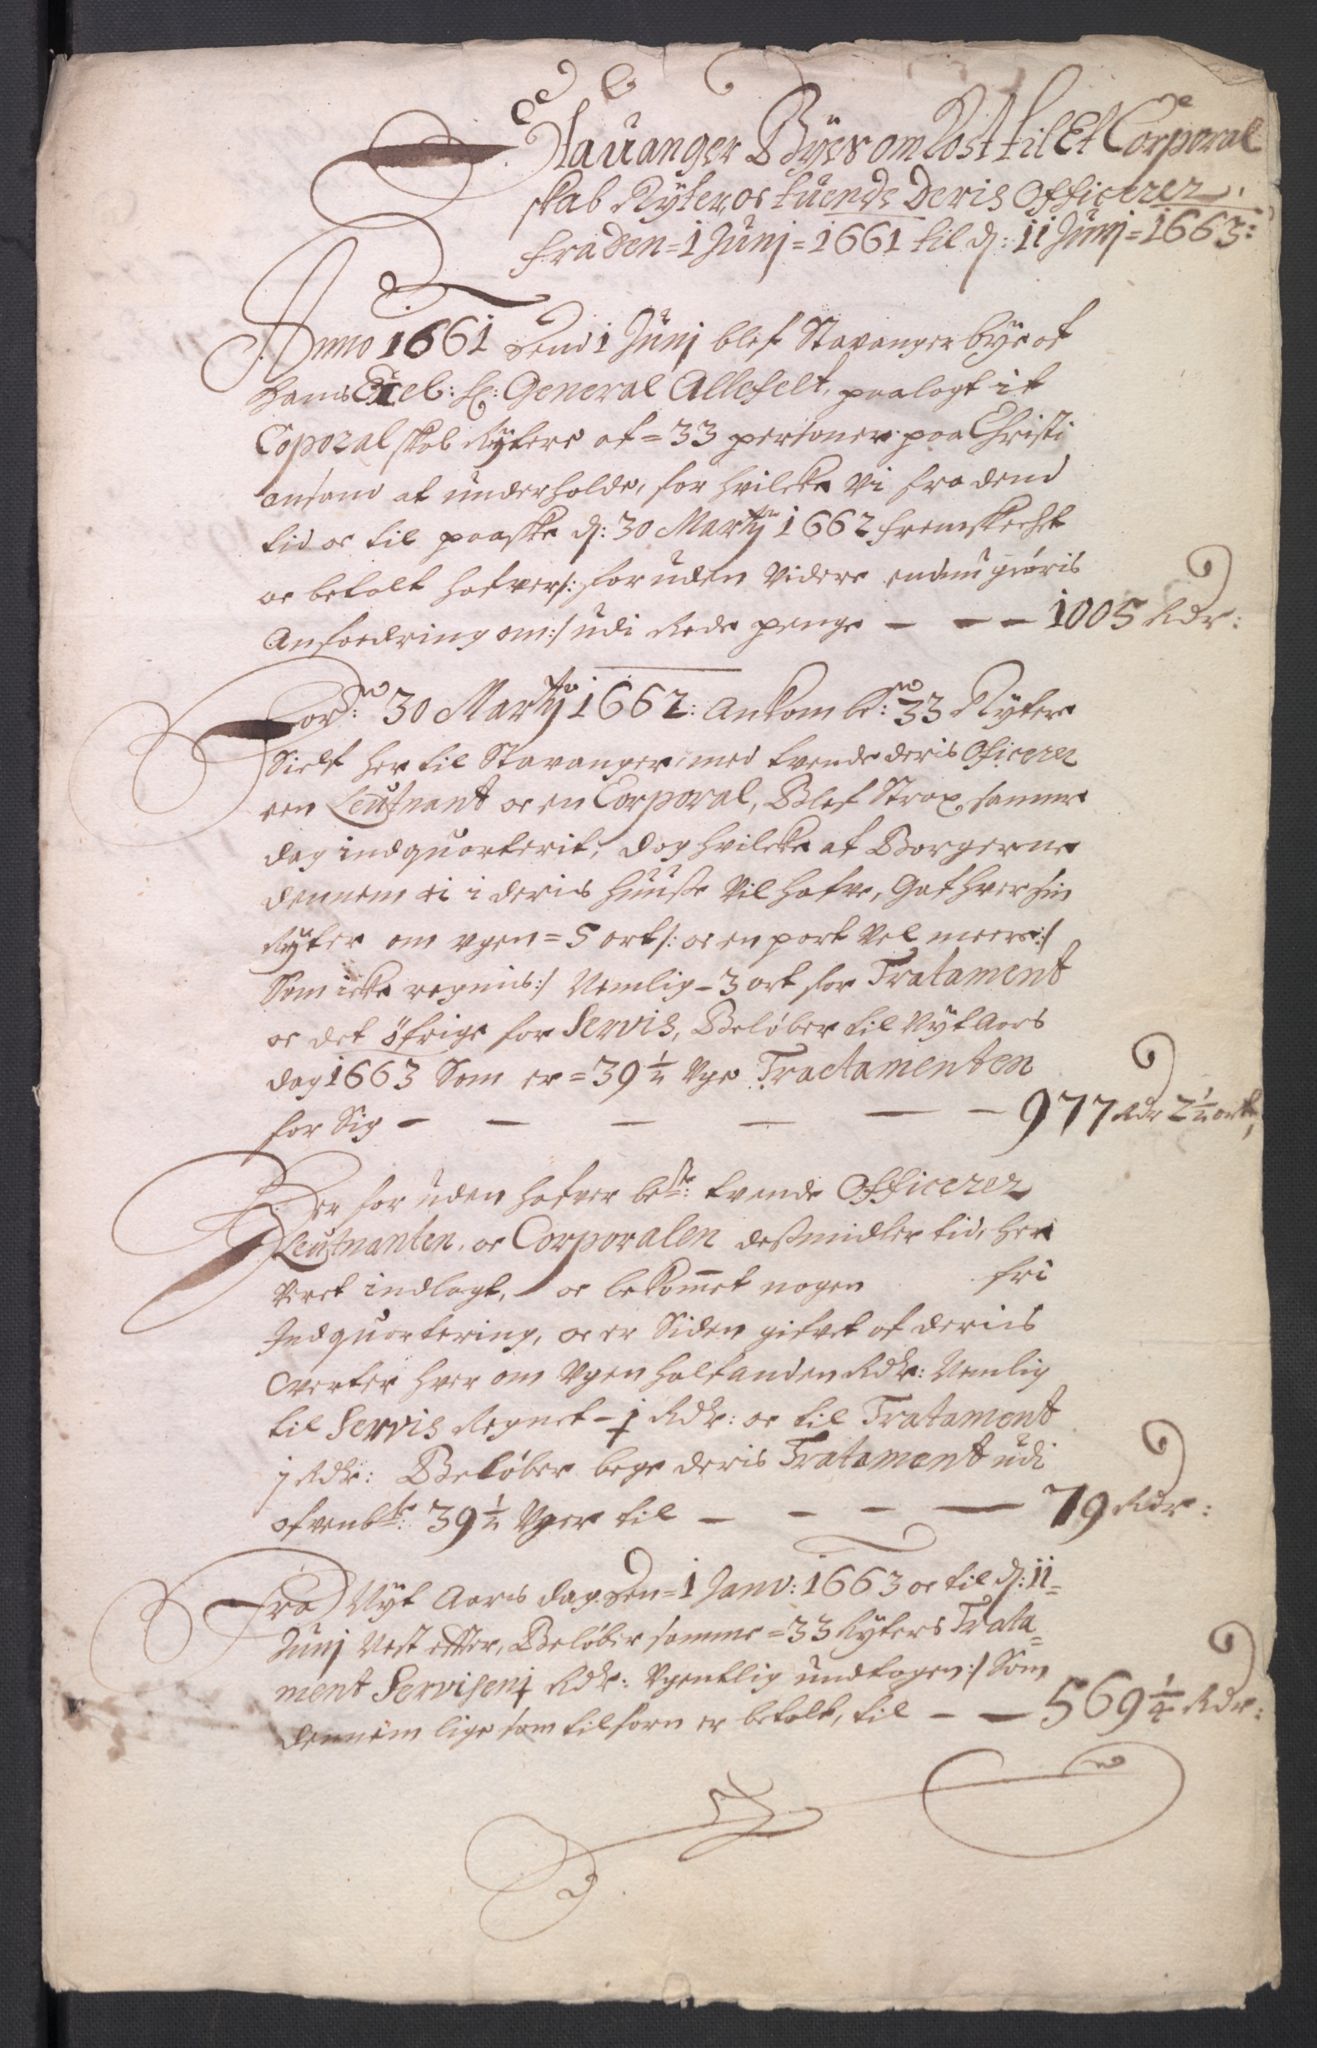 Stauanger Byes omKost til Et Corporal
skab Ryter, oc tuende Deris Officerer
fra Den = 1 Junj = 1661 til d: 11 Junj = 1663:
Anno 1661 Dend 1 Junj blef Stavanger bye af
hans Excel: H: General Allefelt, paalagt it
Coporal skab Rytere af = 33 personer paa Christi
ansand at underholde, for hvilcke Vi fra dend
tid oc til paaske d: 30 Martij 1662 fremskecht
oc betalt hafver /: foruden Videre endnu giøris
Anfordring om :/ udi Rede penge — — — 1005 Rdr:
30 Martij 1662: Ankom be:te 33 Rytere
Sielf her til Stavanger, med tvende deris Officerer
een Leutnant oc en Corporal, Blef Strax samme
dag indquarterit, dog hvilcke af Borgerne
dennem ei i deris Huuse Vil hafve, Gaf hver sin
Ryter om vgen = 5 ort /: oc en part Vel meere :/
Som icke regnis :/ Nemlig - 3 ort for Tratament
oc det öfrige for Servis, Beløber til NytAars
dag 1663 Som er = 39 1/2 Vge Tractamenten
for Sig — — — — — — 977 Rdr 2 1/2 ort,
Der foruden hafver be:te tvende Officerer
Leutnanten, oc Corporalen desmidler tid, her
veret indlagt, oc bekommet nogen fri
Indquartering, oc er Siden gifvet af deris
Verter hver om Vgen halfanden Rdr: Nemlig
til Servis Regnet - 1/2 Rdr: oc til Tratament
1 Rdr: Beløber bege deris Tratament udi
ofvenb:te: 39 1/2 Vger til — — — — 79 Rdr:
Fra Nyt Aars dag Den = 1 Janv: 1663 oc til d: 11 =
Junj Nest efter, Beløber samme = 33 Ryters Trata =
ment Rdr: Vgentlig undtagen :/ Som
dennem lige som tilforn er betalt, til — — 569 1/4 Rdr: